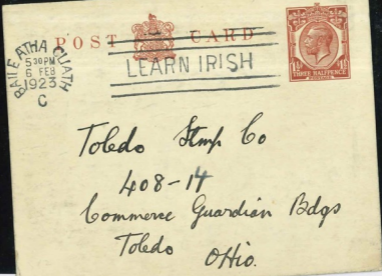 POST CARD
BAILE ATHA CLIATH
5 30 PM
6 FEB
1923
C
LEARN IRISH
1½ 1½
THREE HALFPENCE
Toledo Stmp Co
408-14
Commerce Guardian Bdgs
Toledo
Ohio.